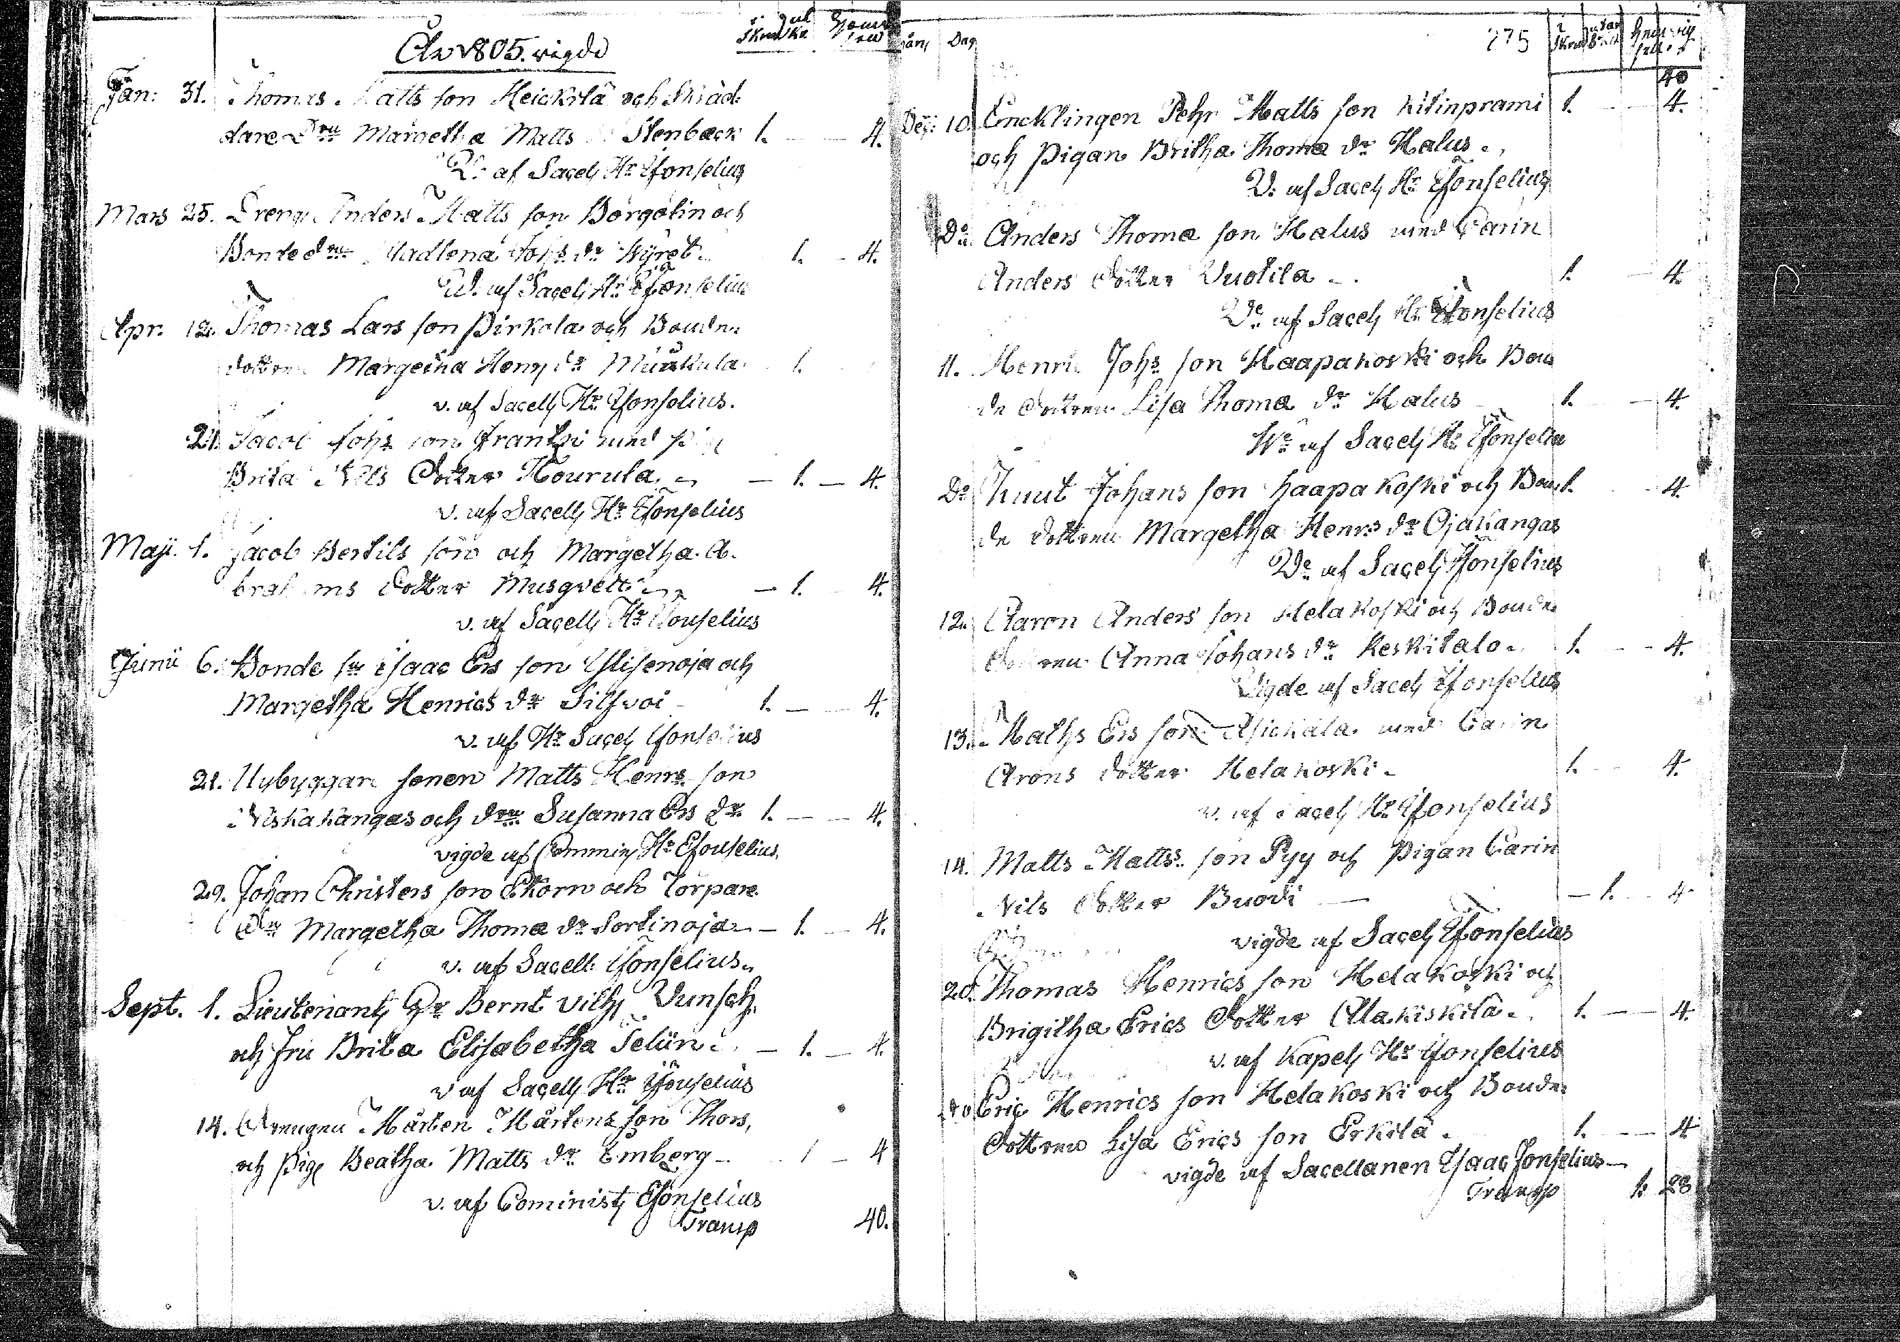 År 1805. vigde
Jan: 31. Thomas Matts son Heickilä och Skräd-
dare Dru Margetha Matts Stenback 1. — 4.
V. af Sacell Hr Efonselius
Mars 25. Dreng Anders Matts son Borgolin och
Bonde dru Madlena Johs dr Nyret 1. — 4.
V. af Sacell Hr Efonselius
Apr. 12. Thomas Lars son Pirkola och Bonde
dottren Margetha Henr dr 1.
v. af Sacell Hr Efonselius.
21. Jacob Johs son Frantsi med
Brita Nils Dotter Hourula — 1. — 4.
v. af Sacell Hr Efonselius
Maji 1. Jacob Bertils son och Margetha A-
brahams dotter Musqvett — 1. 4.
v. af Sacell Hr Efonselius
Junii 6. Bonde sn Isaac Ers son Ylisenoja och
Margetha Henrics dr Silfvoi 1. — 4.
v. af Hr Sacell Efonselius
21. Nybyggare sonen Matts Henrs son
Niskakangas och dru Susanna Ers dr 1. — 4.
vigde af Commin Hr Efonselius.
29. Johan Christers son Ekorn och Torpare
dru Margetha Thomæ dr Sortinoja — 1. — 4.
v. af Sacell. Efonselius.
Sept. 1. Lieutenant Hr Bernt Vilh Vunsch
och fru Brita Elisabetha Telin — 1. — 4.
v af Sacell Hr Efonselius
14. Drengen Mårten Mårtens son Thors,
och Pig Beatha Matts dr Emberg — 1 — 4
v. af Cominist Efonselius
Transp 40.
Dag 275
40
Dec: 10. Encklingen Pehr Matts son Kitinprami 1. — 4.
och Pigan Britha Thomæ dr Halus.
V. af Sacell Hr Efonselius
Do Anders Thomæ son Halus med Carin
Anders dotter Vuotila 1. — 4.
Ve af Sacell Hr Efonselius
11. Henric Johs son Haapakoski och Bon
de dottren Lisa Thomæ dr Halus 1. — 4.
Ve af Sacell Hr Efonselius
Do Knut Johans son Haapakoski och Bon 1. — 4.
de dottren Margetha Henrs dr Ojakangas
Ve af Sacell Efonselius
12. Aaron Anders son Helakoski och Bonde
dottren Anna Johans dr Keskitalo 1. — 4.
Vigde af Sacell Efonselius
13. Maths Ers son Asickala med Carin
Arons dotter Helakoski 1. — 4.
v. af Sacell Hr Efonselius
14. Matts Matts son Pyy och Pigan Carin
Nils Dotter Buodi — 1. — 4
vigde af Sacell Efonselius
20. Thomas Henrics son Helakoski och
Brigitha Erics Dotter Alakiskilä 1. — 4.
v. af Kapell Hr Efonselius
do Eric Henrics son Helakoski och Bonde
dottren Lisa Erics son Erkilä 1. — 4
vigde af Sacellanen Isaac Jonselius
Transp 1: 28